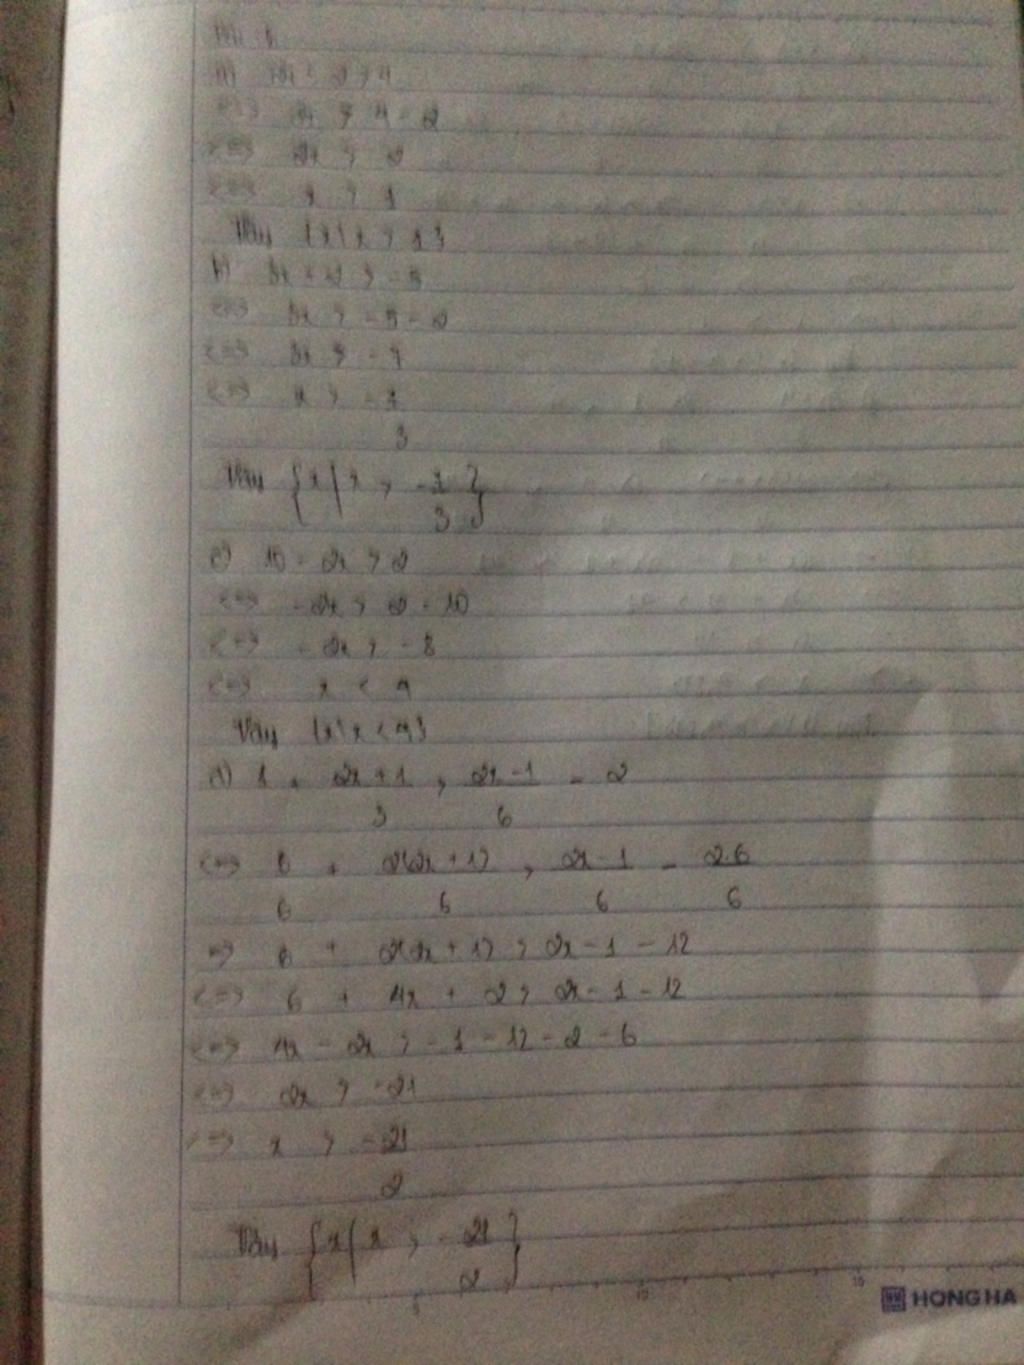 a) 2x + 2 > 4
<=> 2x > 4 - 2
<=> 2x > 2
<=> x > 1
Vậy {x | x > 1}
b) 3x + 2 > -5
<=> 3x > -5 - 2
<=> 3x > -7
<=> x > -7/3
Vậy {x | x > -7/3}
c) 10 - 2x > 2
<=> -2x > 2 - 10
<=> -2x > -8
<=> x < 4
Vậy {x | x < 4}
d) 1 + (2x + 1)/3 > (2x - 1)/6 - 2
<=> 6/6 + 2(2x + 1)/6 > (2x - 1)/6 - 2.6/6
=> 6 + 2(2x + 1) > 2x - 1 - 12
<=> 6 + 4x + 2 > 2x - 1 - 12
<=> 4x - 2x > -1 - 12 - 2 - 6
<=> 2x > -21
<=> x > -21/2
Vậy {x | x > -21/2}
5 10 15
HONG HA